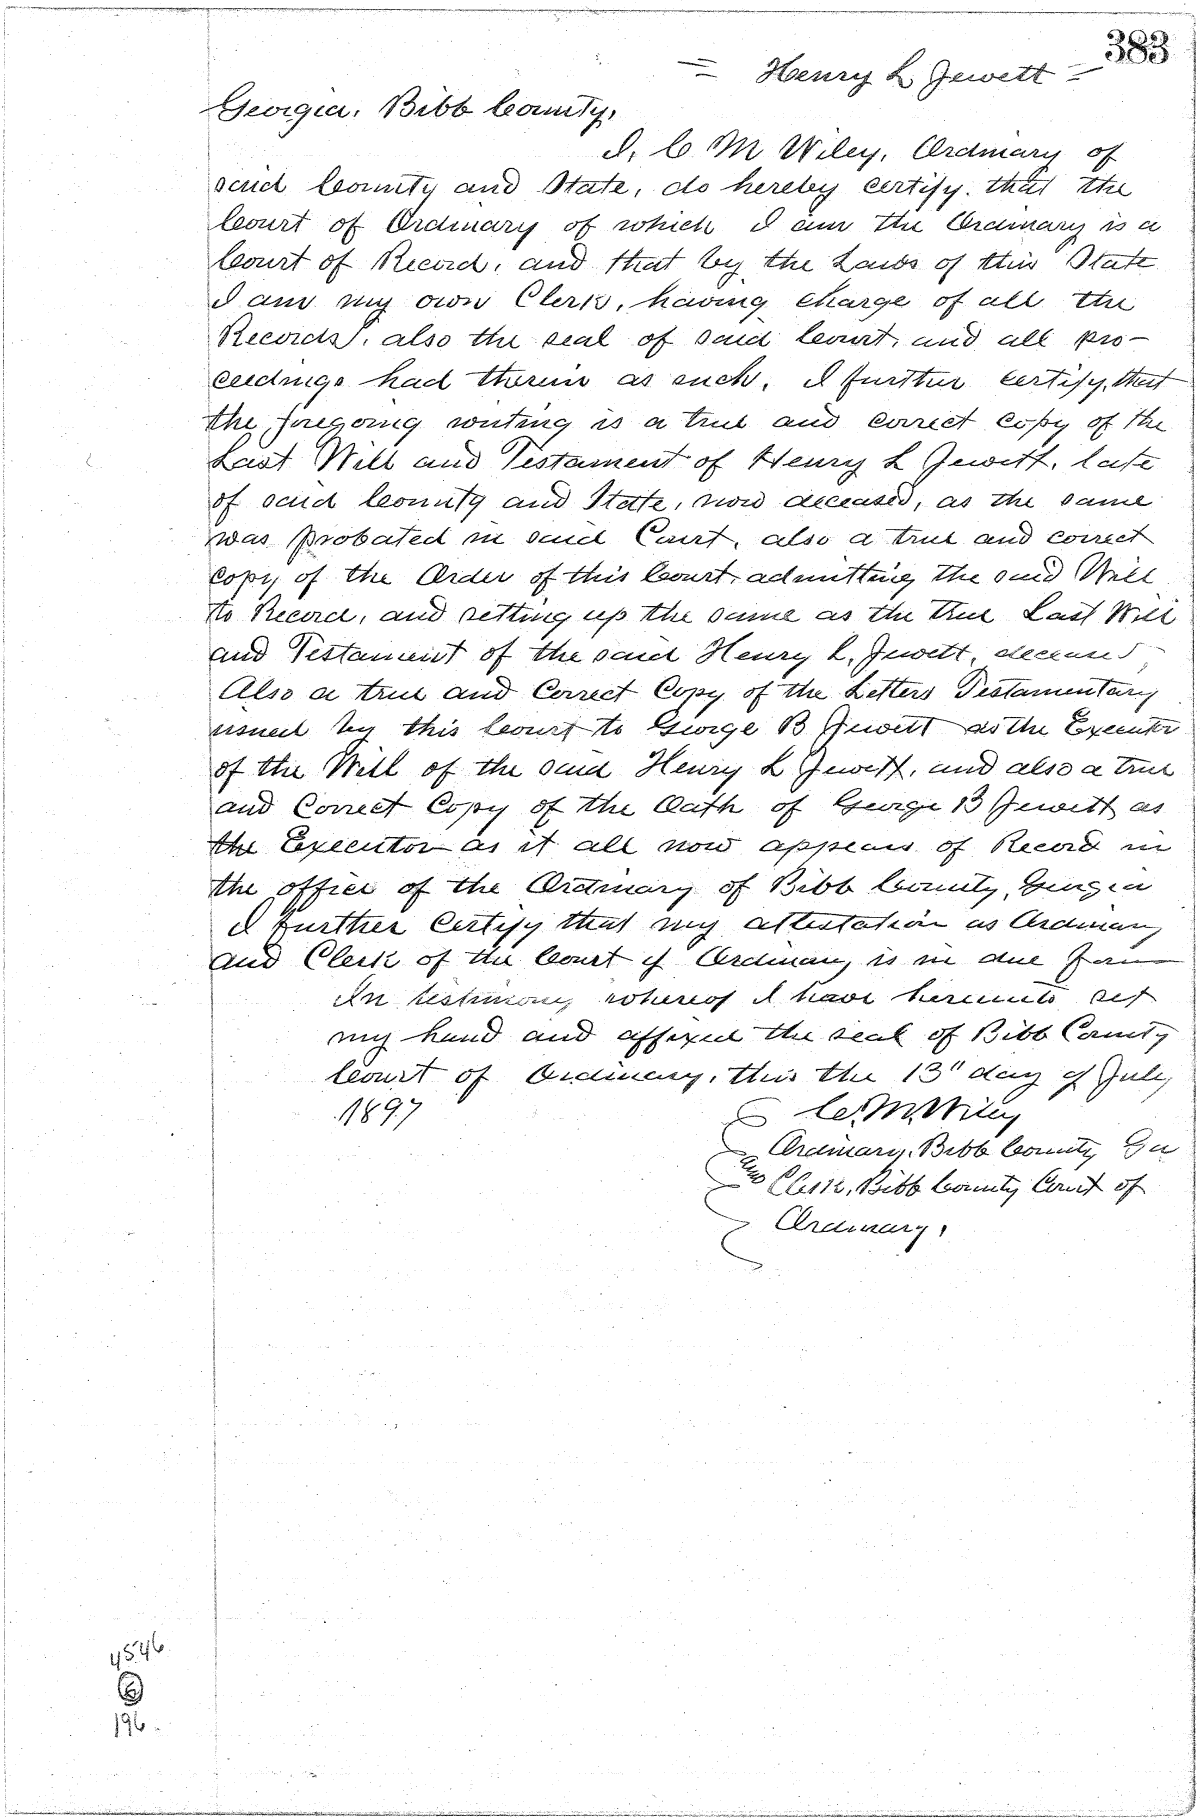 383
= Henry L Jewett =
Georgia, Bibb County,
I, C M Wiley, Ordinary of
said County and State, do hereby certify, that the
Court of Ordinary of which I am the Ordinary is a
Court of Record, and that by the Laws of this State
I am my own Clerk, having charge of all the
Records, also the seal of said Court, and all pro-
ceedings had therein as such. I further certify, that
the foregoing writing is a true and correct copy of the
Last Will and Testament of Henry L Jewett, late
of said County and State, now deceased, as the same
was probated in said Court, also a true and correct
copy of the Order of this Court, admitting the said Will
to Record, and setting up the same as the true Last Will
and Testament of the said Henry L. Jewett, deceased
Also a true and Correct Copy of the Letters Testamentary
issued by this Court to George B Jewett as the Executor
of the Will of the said Henry L Jewett, and also a true
and Correct Copy of the Oath of George B Jewett as
the Executor as it all now appears of Record in
the office of the Ordinary of Bibb County, Georgia
I further Certify that my attestation as Ordinary
and Clerk of the Court of Ordinary is in due form
In testimony whereof I have hereunto set
my hand and affixed the seal of Bibb County
Court of Ordinary, this the 13" day of July
1897
C. M. Wiley
Ordinary, Bibb County Ga
and Clerk, Bibb County Court of
Ordinary.
4546
6
196